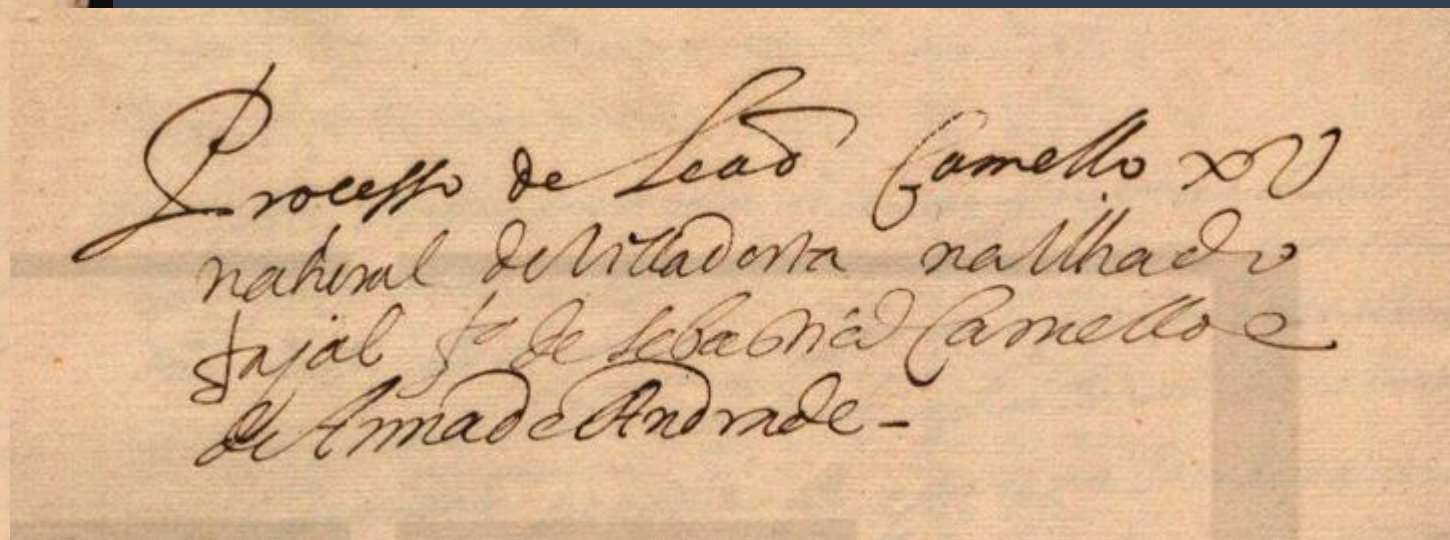 Processo de Leaõ Camello xpõ
natural de Villa dorta na Ilha do
fajal fº de Sebastiaõ Camello e
de Anna de Andrade -